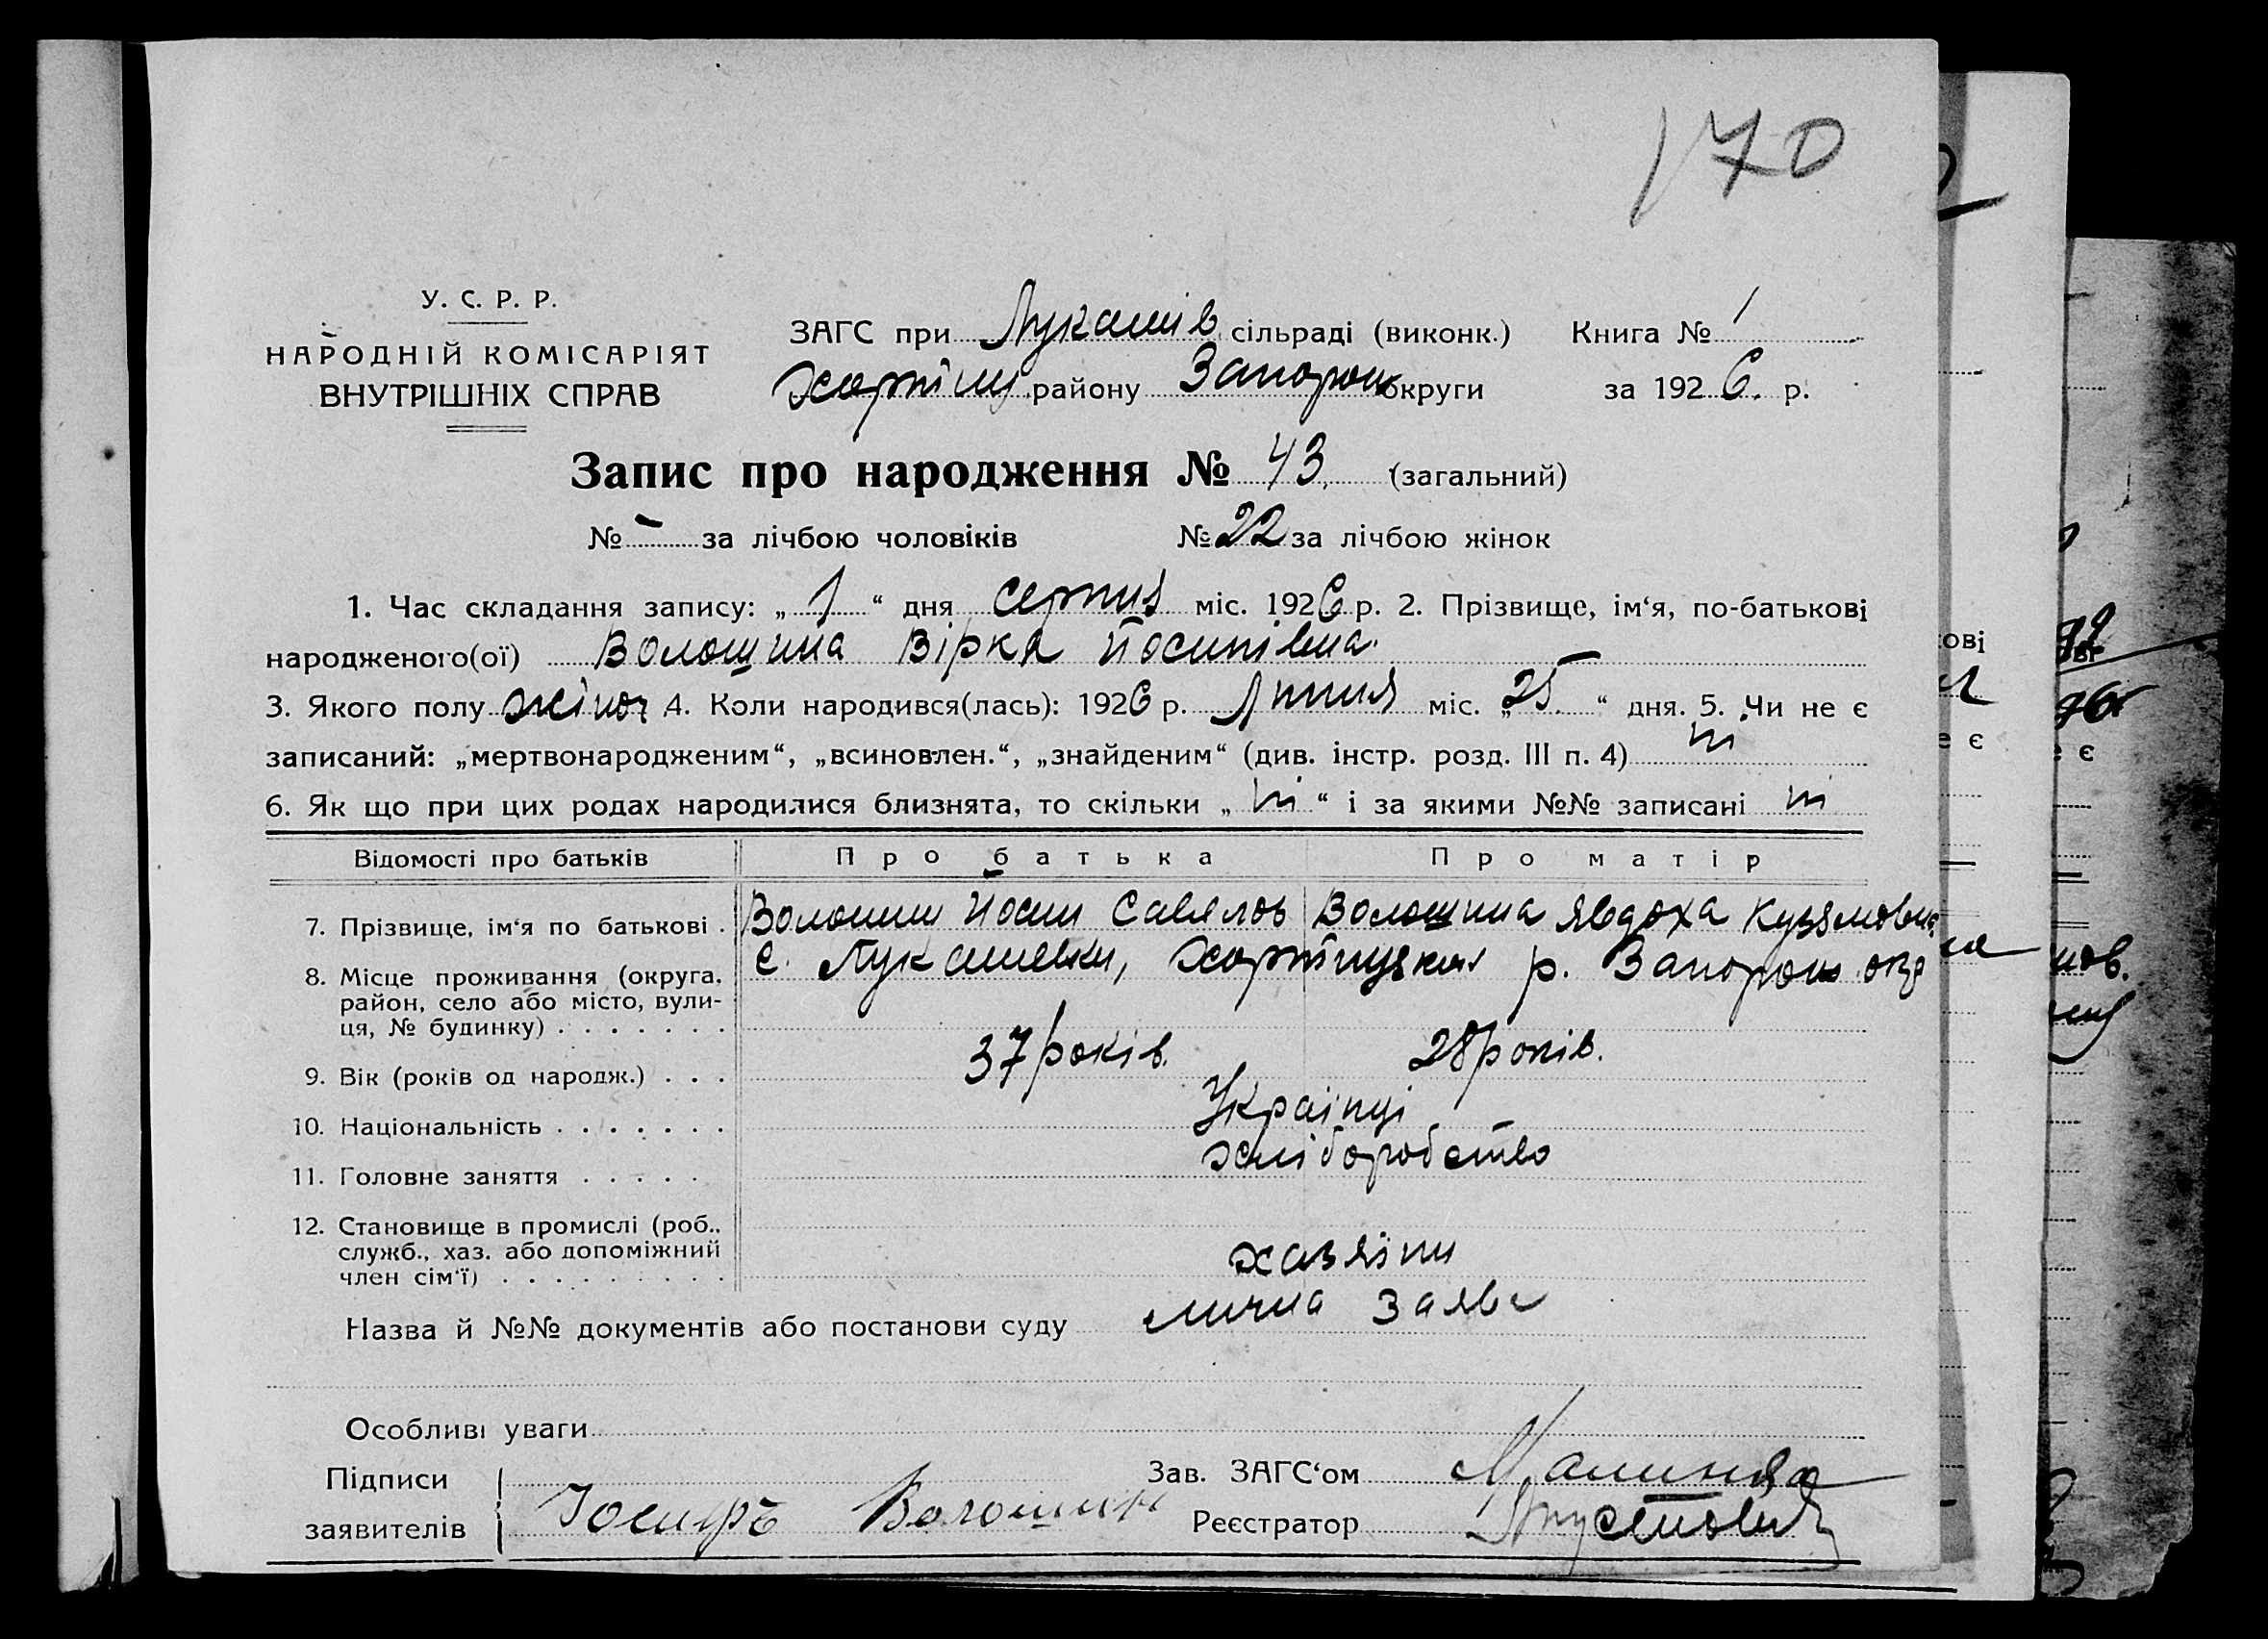 170
У. С. Р. Р.
НАРОДНІЙ КОМІСАРІЯТ
ВНУТРІШНІХ СПРАВ
ЗАГС при Лукашів сільраді (виконк.) Книга № 1
Хортіцц району Запорош округи за 1926. р.
Запис про народження № 43. (загальний)
№ - за лічбою чоловіків № 22 за лічбою жінок
1. Час складання запису: „ 1 “ дня серпня міс. 1926 р. 2. Прізвище, ім‘я, по-батькові
народженого(ої) Волошина Вірка Йосипівна.
3. Якого полу жіноч 4. Коли народився(лась): 1926 р. Липня міс. „ 25. “ дня. 5. Чи не є
записаний: „мертвонародженим“, „всиновлен.“, „знайденим“ (див. інстр. розд. III п. 4) ні
6. Як що при цих родах народилися близнята, то скільки „ ні “ і за якими №№ записані ні
Відомості про батьків Про батька Про матір
7. Прізвище, ім‘я по батькові . Волошин Йосип Савелов Волошина Явдоха Кузямовна.
8. Місце проживання (округа, с. Лукашевки, р. Запорош окр
район, село або місто, вули-
ця, № будинку) . . . . . . .
9. Вік (років од народж.) . . . 37 років. 28 років.
10. Національність . . . . . . . Українці
11. Головне заняття . . . . . хліборобство
12. Становище в промислі (роб..
служб., хаз. або допоміжний
член сім‘ї) . . . . . . . . . хазяїни
Назва й №№ документів або постанови суду лична заява
Особливі уваги
Підписи Зав. ЗАГС‘ом
заявителів Іосифъ Волошин Реєстратор